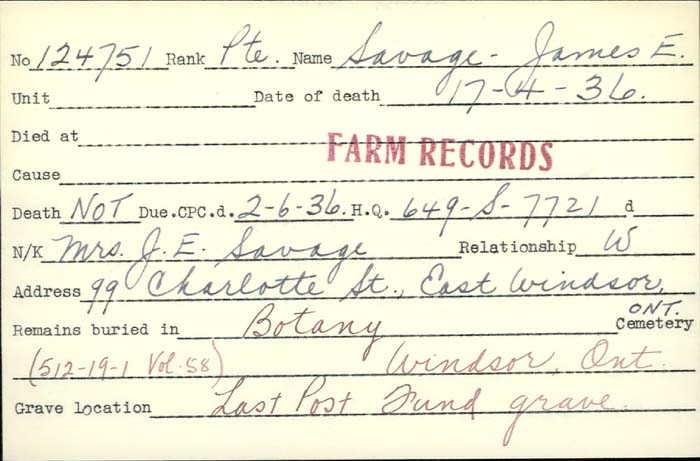 No 124751 Rank Pte. Name Savage - James E.
Unit Date of death 17-4-36.
Died at
FARM RECORDS
Cause
Death NOT Due.CPC.d. 2-6-36. H.Q. 649-S-7721 d
N/K Mrs. J. E. Savage Relationship W
Address 99 Charlotte St., East Windsor,
ONT.
Remains buried in Botany Cemetery
(512-19-1 Vol. 58) Windsor, Ont.
Grave location Last Post Fund grave.